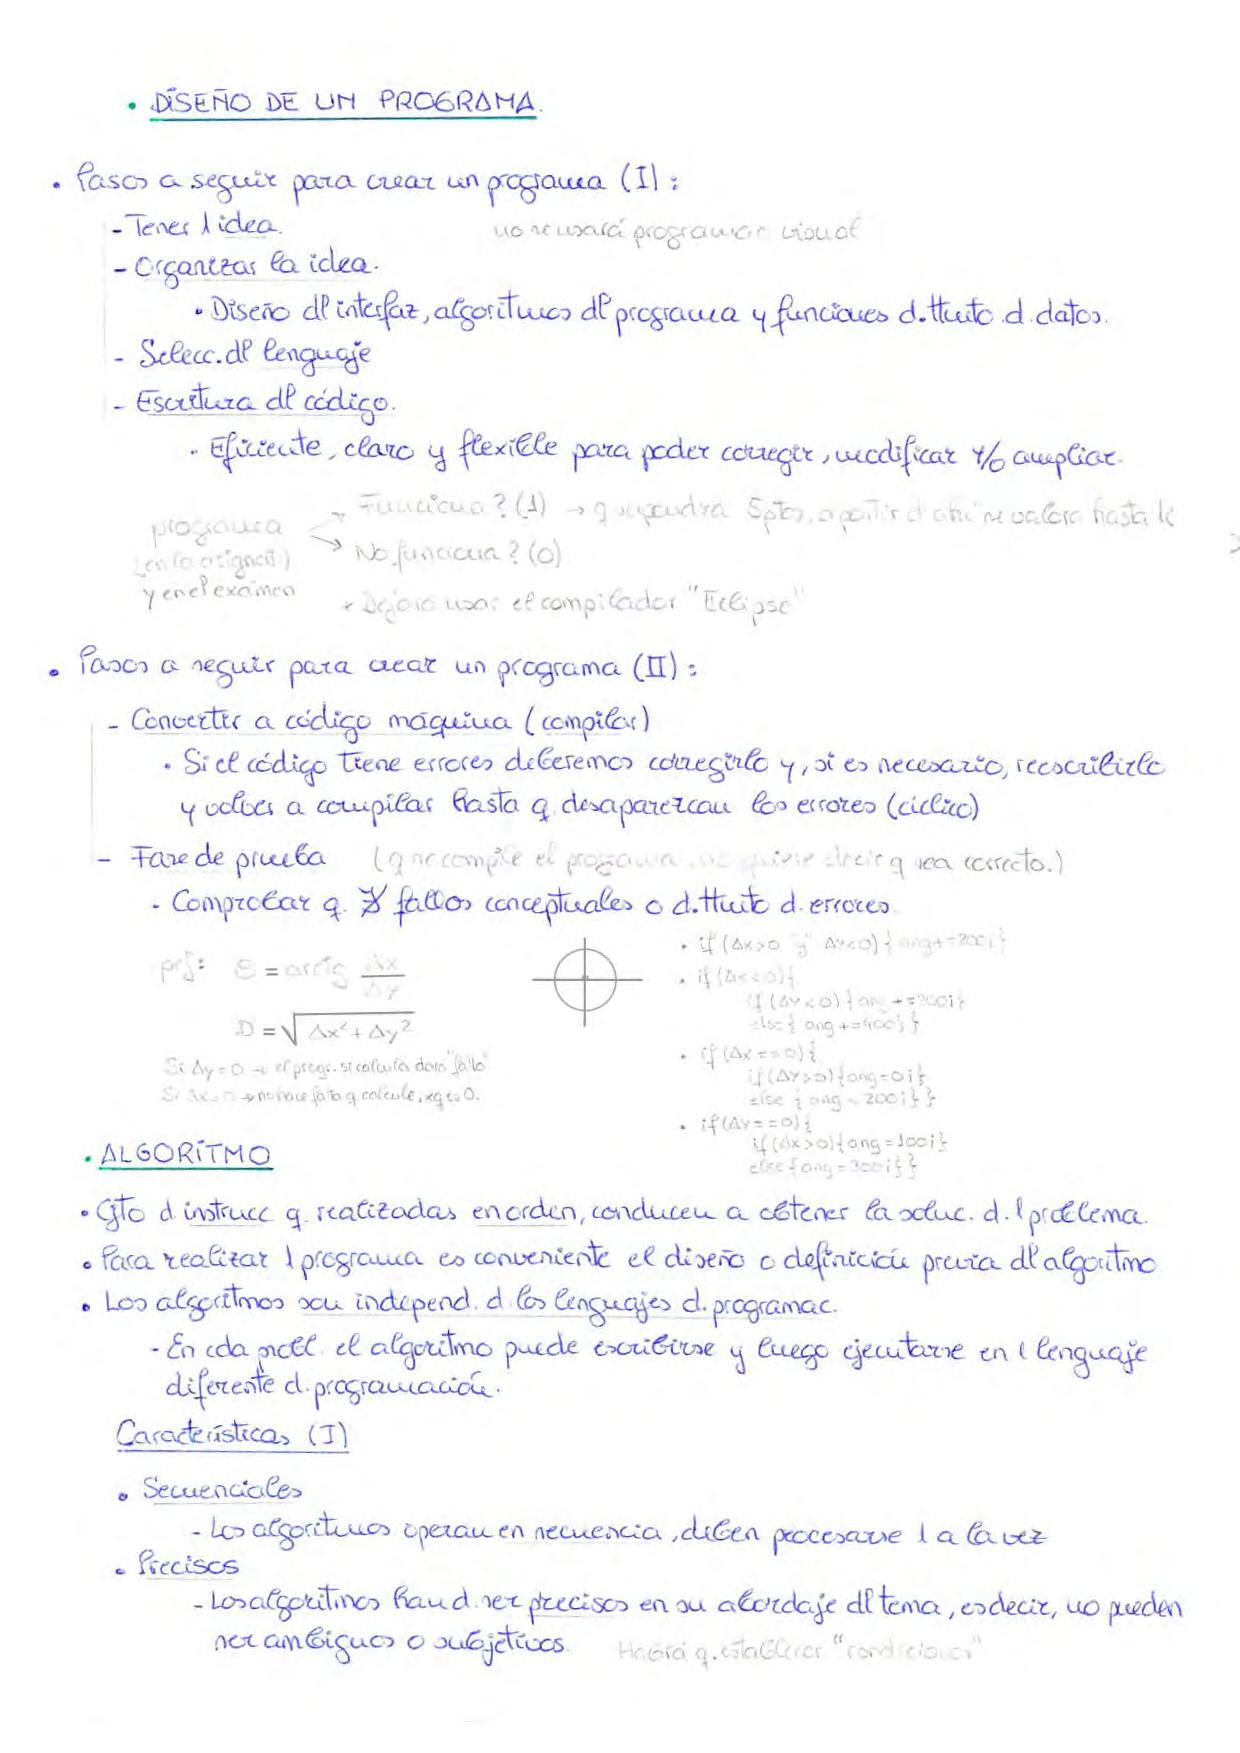 • DISEÑO DE UN PROGRAMA.
• Pasos a seguir para crear un programa (I):
- Tener 1 idea.
no se usará programar visual
- Organizar la idea.
• Diseño dl interfaz, algoritmos dl programa y funciones d.ttmto d. datos.
- Selecc. dl lenguaje
- Escritura dl código.
• Eficiente, claro y flexible para poder corregir, modificar y/o ampliar.
programa
(en la asignat)
y en el exámen
→ Funciona? (1) → q supondrá 5ptos, a partir d ahí se valora hasta
→ No funciona? (0)
* Dejará usar el compilador "Eclipse"
• Pasos a seguir para crear un programa (II):
- Convertir a código máquina (compilar)
• Si el código tiene errores deberemos corregirlo y, si es necesario, reescribirlo
y volver a compilar hasta q. desaparezcan los errores (cíclico)
- Fase de prueba (q se compile el programa, no quiere decir q sea correcto.)
• Comprobar q. ∄ fallos conceptuales o d.ttmto d. errores.
Θ = arctg Δx / Δy
D = √Δx²+Δy²
Si Δy=0 → el progr. si calcula dará "fallo"
Si Δx=0 → no hace falta q. calcule, xq es 0.
• if (Δx>0 "y" Δy<0) { ang+=200;}
• if (Δx<0){
if (Δy<0) { ang +=200;}
else { ang +=400;} }
• if (Δx ==0) {
if (Δy>0) {ang=0;}
else { ang = 200;} }
• if (Δy==0) {
if (Δx>0) {ang=100;}
else {ang=300;} }
• ALGORITMO
• Cjto d. instrucc q. realizadas en orden, conducen a obtener la soluc. d. 1 problema.
• Para realizar 1 programa es conveniente el diseño o definición previa dl algoritmo
• Los algoritmos son independ. d. los lenguajes d. programac.
- En cda probl. el algoritmo puede escribirse y luego ejecutarse en 1 lenguaje
diferente d. programación.
Características (I)
• Secuenciales
- Los algoritmos operan en secuencia, deben procesarse 1 a la vez
• Precisos
- Los algoritmos han d. ser precisos en su abordaje dl tema, es decir, no pueden
ser ambiguos o subjetivos. Habrá q. establecer "condiciones"